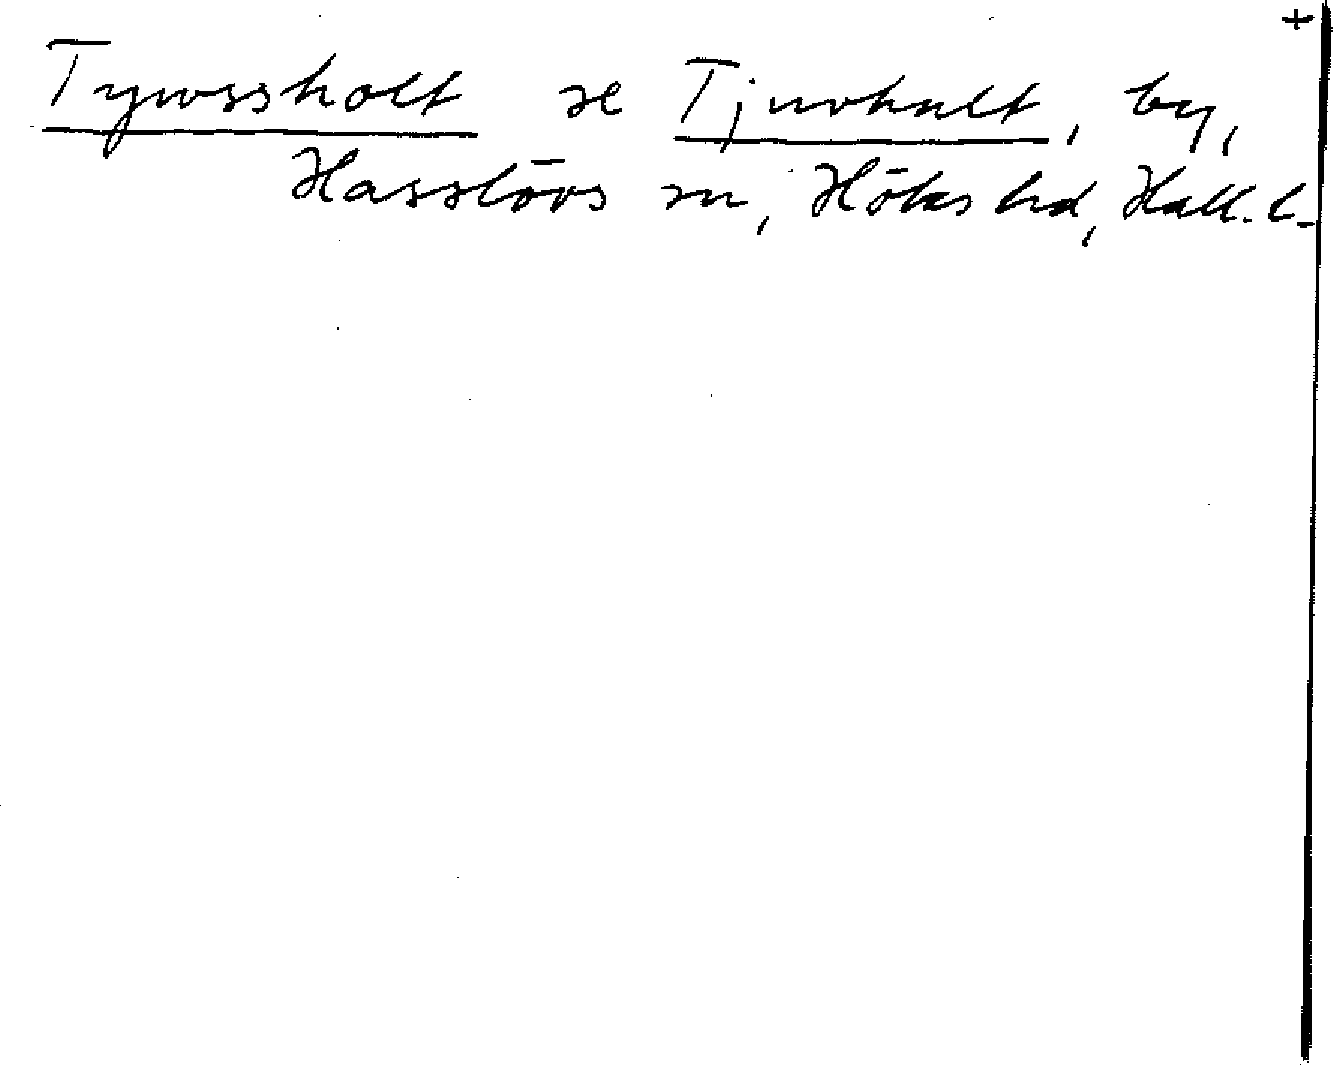 +
Tywssholt se Tjuvhult, by,
Hasslövs sn, Höks hd, Hall. l.